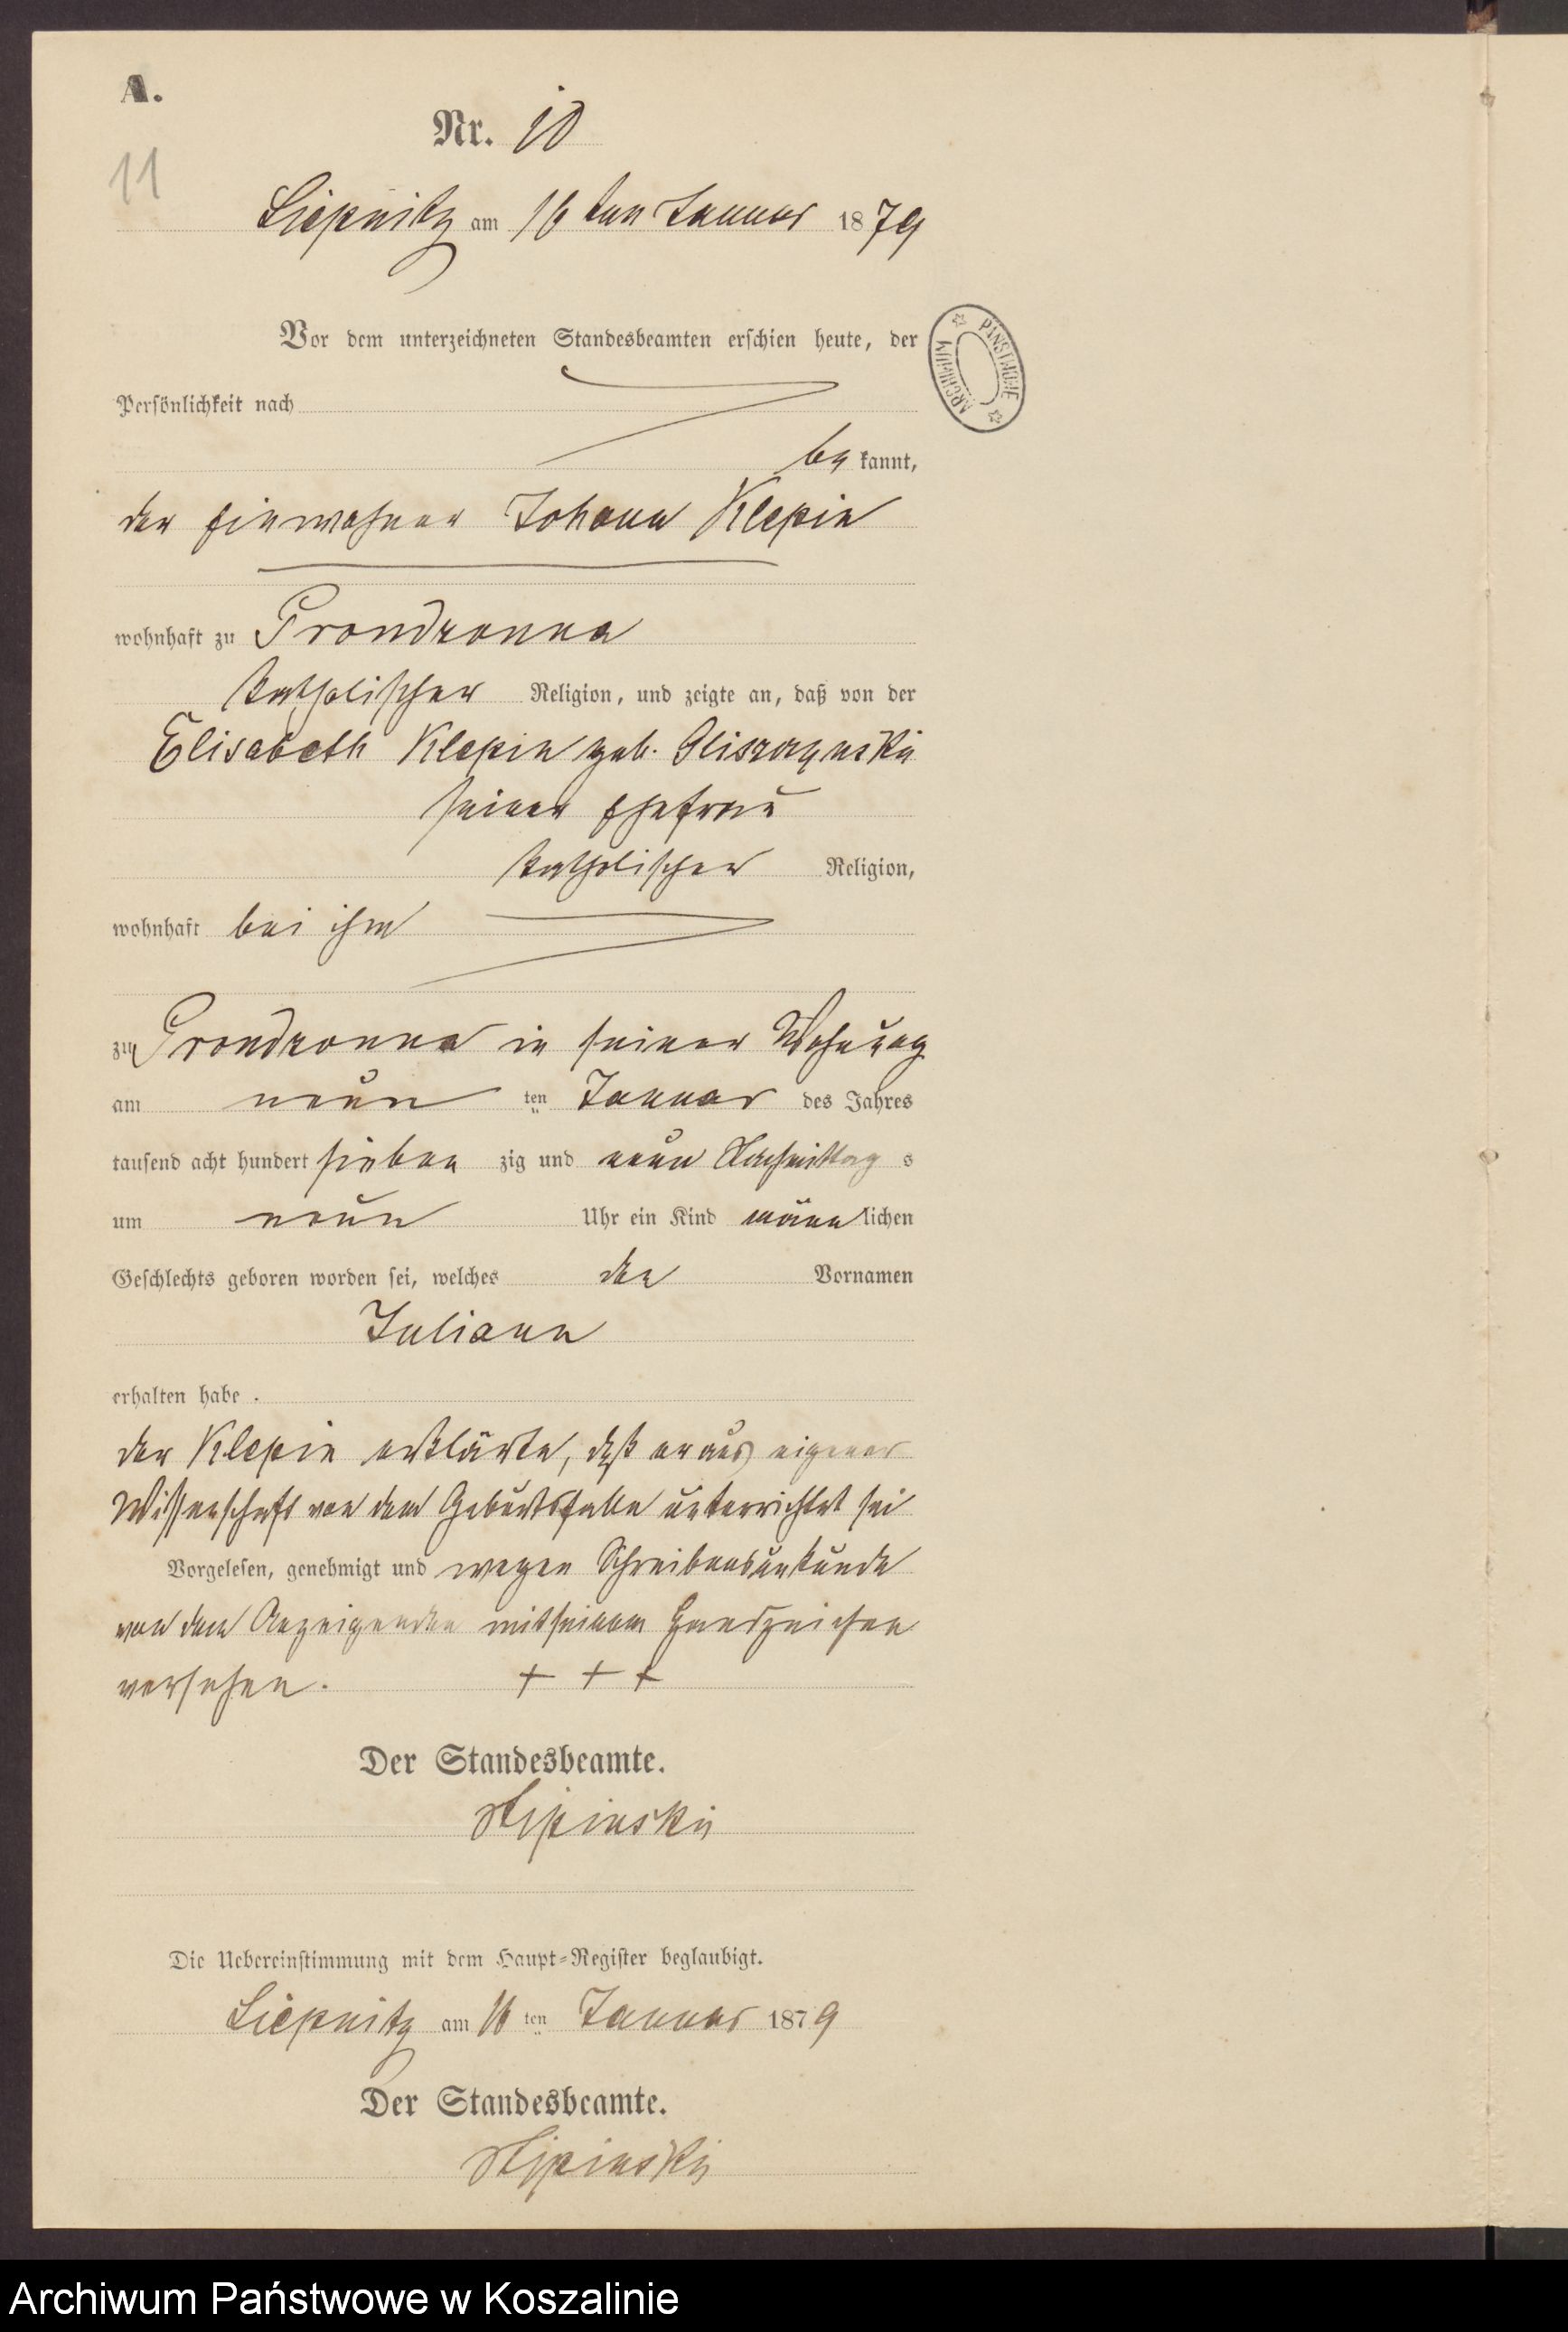 A.
Nr. 10
11
Liepnitz am 16ten Januar 1879
Vor dem unterzeichneten Standesbeamten erschien heute, der
Persönlichkeit nach
be kannt,
der Einwohner Johann Klepin
wohnhaft zu Prondzonna
katholischer Religion, und zeigte an, daß von der
Elisabeth Klepin geb. Gliszczynski
seiner Ehefrau
katholischer Religion,
wohnhaft bei ihm
zu Prondzonna in seiner Wohnung
am neun ten Januar des Jahres
tausend acht hundert sieben zig und neun Nachmittag s
um neun Uhr ein Kind männ lichen
Geschlechts geboren worden sei, welches den Vornamen
Juliann
erhalten habe .
der Klepin erklärte, daß er aus eigener
Wissenschaft von dem Geburtsfalle unterrichtet sei
Vorgelesen, genehmigt und wegen Schreibensunkunde
von dem Anzeigenden mit seinem Handzeichen
versehen. + + +
Der Standesbeamte.
Die Uebereinstimmung mit dem Haupt-Register beglaubigt.
Liepnitz am 16 ten Januar 1879
Der Standesbeamte.
ARCHIWUM PAŃSTWOWE
Archiwum Państwowe w Koszalinie